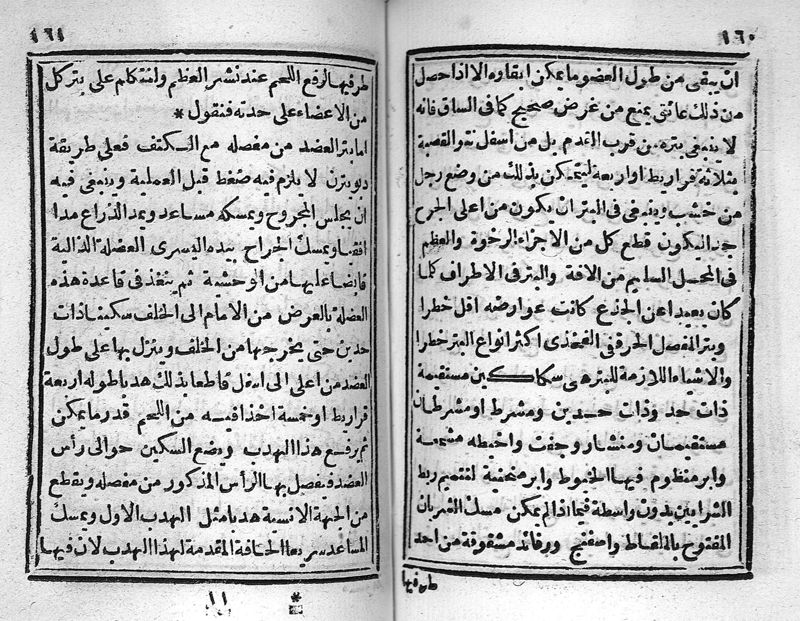 ١٦٠
ان يبقى من طول العضو ما يمكن ابقاوه الا اذا حصل
من ذلك عائق يمنع من غرض صحيح كما فى الساق فانه
لا ينبغى بتره من قرب القدم بل من اسفل نتو القصبة
بثلاثة قراريط او اربعة ليتمكن بذلك من وضع رجل
من خشب وينبغى فى البتر ان يكون من اعلى الجرح
حدا ليكون قطع كل من الاجزاء الرخوة والعظم
فى المحل السليم من الافة والبتر فى الاطراف كلما
كان بعيدا عن الجذع كانت عوارضه اقل خطرا
وبتر المفصل الحرقفى الفخذى اكثر انواع البتر خطرا
والاشياء اللازمة للبتر هى سكاكين مستقيمة
ذات حد وذات حدين ومشرط او مشرطان
مستقيمان ومنشار وجفت واخيطه مشمعة
وابر منظوم فيها الخيوط وابر منحنية لتتميم ربط
الشرايين بدون واسطة فيما اذا لم يمكن مسك الشريان
المفتوح بالملقاط واسفنج ورفائد مشقوقة من احد
طرفيها
١٦١
طرفيها لرفع اللحم عند نشر العظم ولنتكلم على بتر كل
من الاعضاء على حدته فنقول *
اما بتر العضد من مفصله مع الكتف فعلى طريقة
دوبوترن لا يلزم فيه ضغط قبل العملية وينبغى فيه
ان يجلس المجروح ويمسكه مساعد ويمد الذراع مدا
افقيا ويمسك الجراح بيده اليسرى العضلة الدالية
قابضا عليها من الوحشية ثم ينفذ فى قاعدة هذه
العضلة بالعرض من الامام الى الخلف سكينا ذات
حدين حتى يخرجها من الخلف وينزل بها على طول
العضد من اعلى الى اسفل قاطعا بذلك هدبا طوله اربعة
قراريط او خمسة اخذا فيه من اللحم قدر ما يمكن
ثم يرفع هذا الهدب ويضع السكين حوالى رأس
العضد فيفصل بها الرأس المذكور من مفصله ويقطع
من الجهة الانسية هدبا مثل الهدب الاول ويمسك
المساعد سريعا الحافة المقدمة لهذا الهدب لان فيها
*
١١